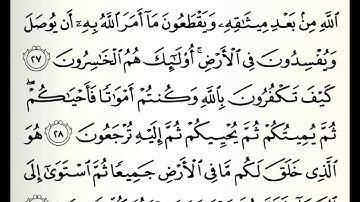 ٱللَّهِ مِنۢ بَعْدِ مِيثَـٰقِهِۦ وَيَقْطَعُونَ مَآ أَمَرَ ٱللَّهُ بِهِۦٓ أَن يُوصَلَ
وَيُفْسِدُونَ فِى ٱلْأَرْضِ ۚ أُو۟لَـٰٓئِكَ هُمُ ٱلْخَـٰسِرُونَ ٢٧
كَيْفَ تَكْفُرُونَ بِٱللَّهِ وَكُنتُمْ أَمْوَٰتًا فَأَحْيَـٰكُمْ ۖ
ثُمَّ يُمِيتُكُمْ ثُمَّ يُحْيِيكُمْ ثُمَّ إِلَيْهِ تُرْجَعُونَ ٢٨ هُوَ
ٱلَّذِى خَلَقَ لَكُم مَّا فِى ٱلْأَرْضِ جَمِيعًا ثُمَّ ٱسْتَوَىٰٓ إِلَى